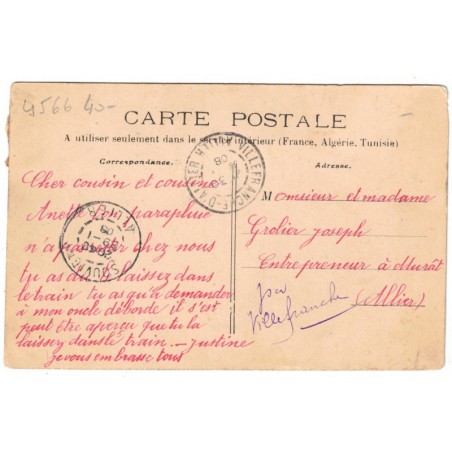 4566 40-
CARTE POSTALE
A utiliser seulement dans le service intérieur (France, Algérie, Tunisie)
Correspondance.
Adresse.
Cher cousin et cousine
Anette ton parapluie
n'a pas rester chez nous
tu as du laissez dans
le train tu as qu'a demander
à mon oncle déborde il s'est
peut être aperçu que tu la
laissez dans le train. — Justine
je vous embrasse tous
Monsieur et madame
Grolier joseph
Entrepreneur à Murat
(Allier)
par
Villefranche
VILLEFRANCHE-D'ALLIER
08
SOUVIGNY
ALLIER